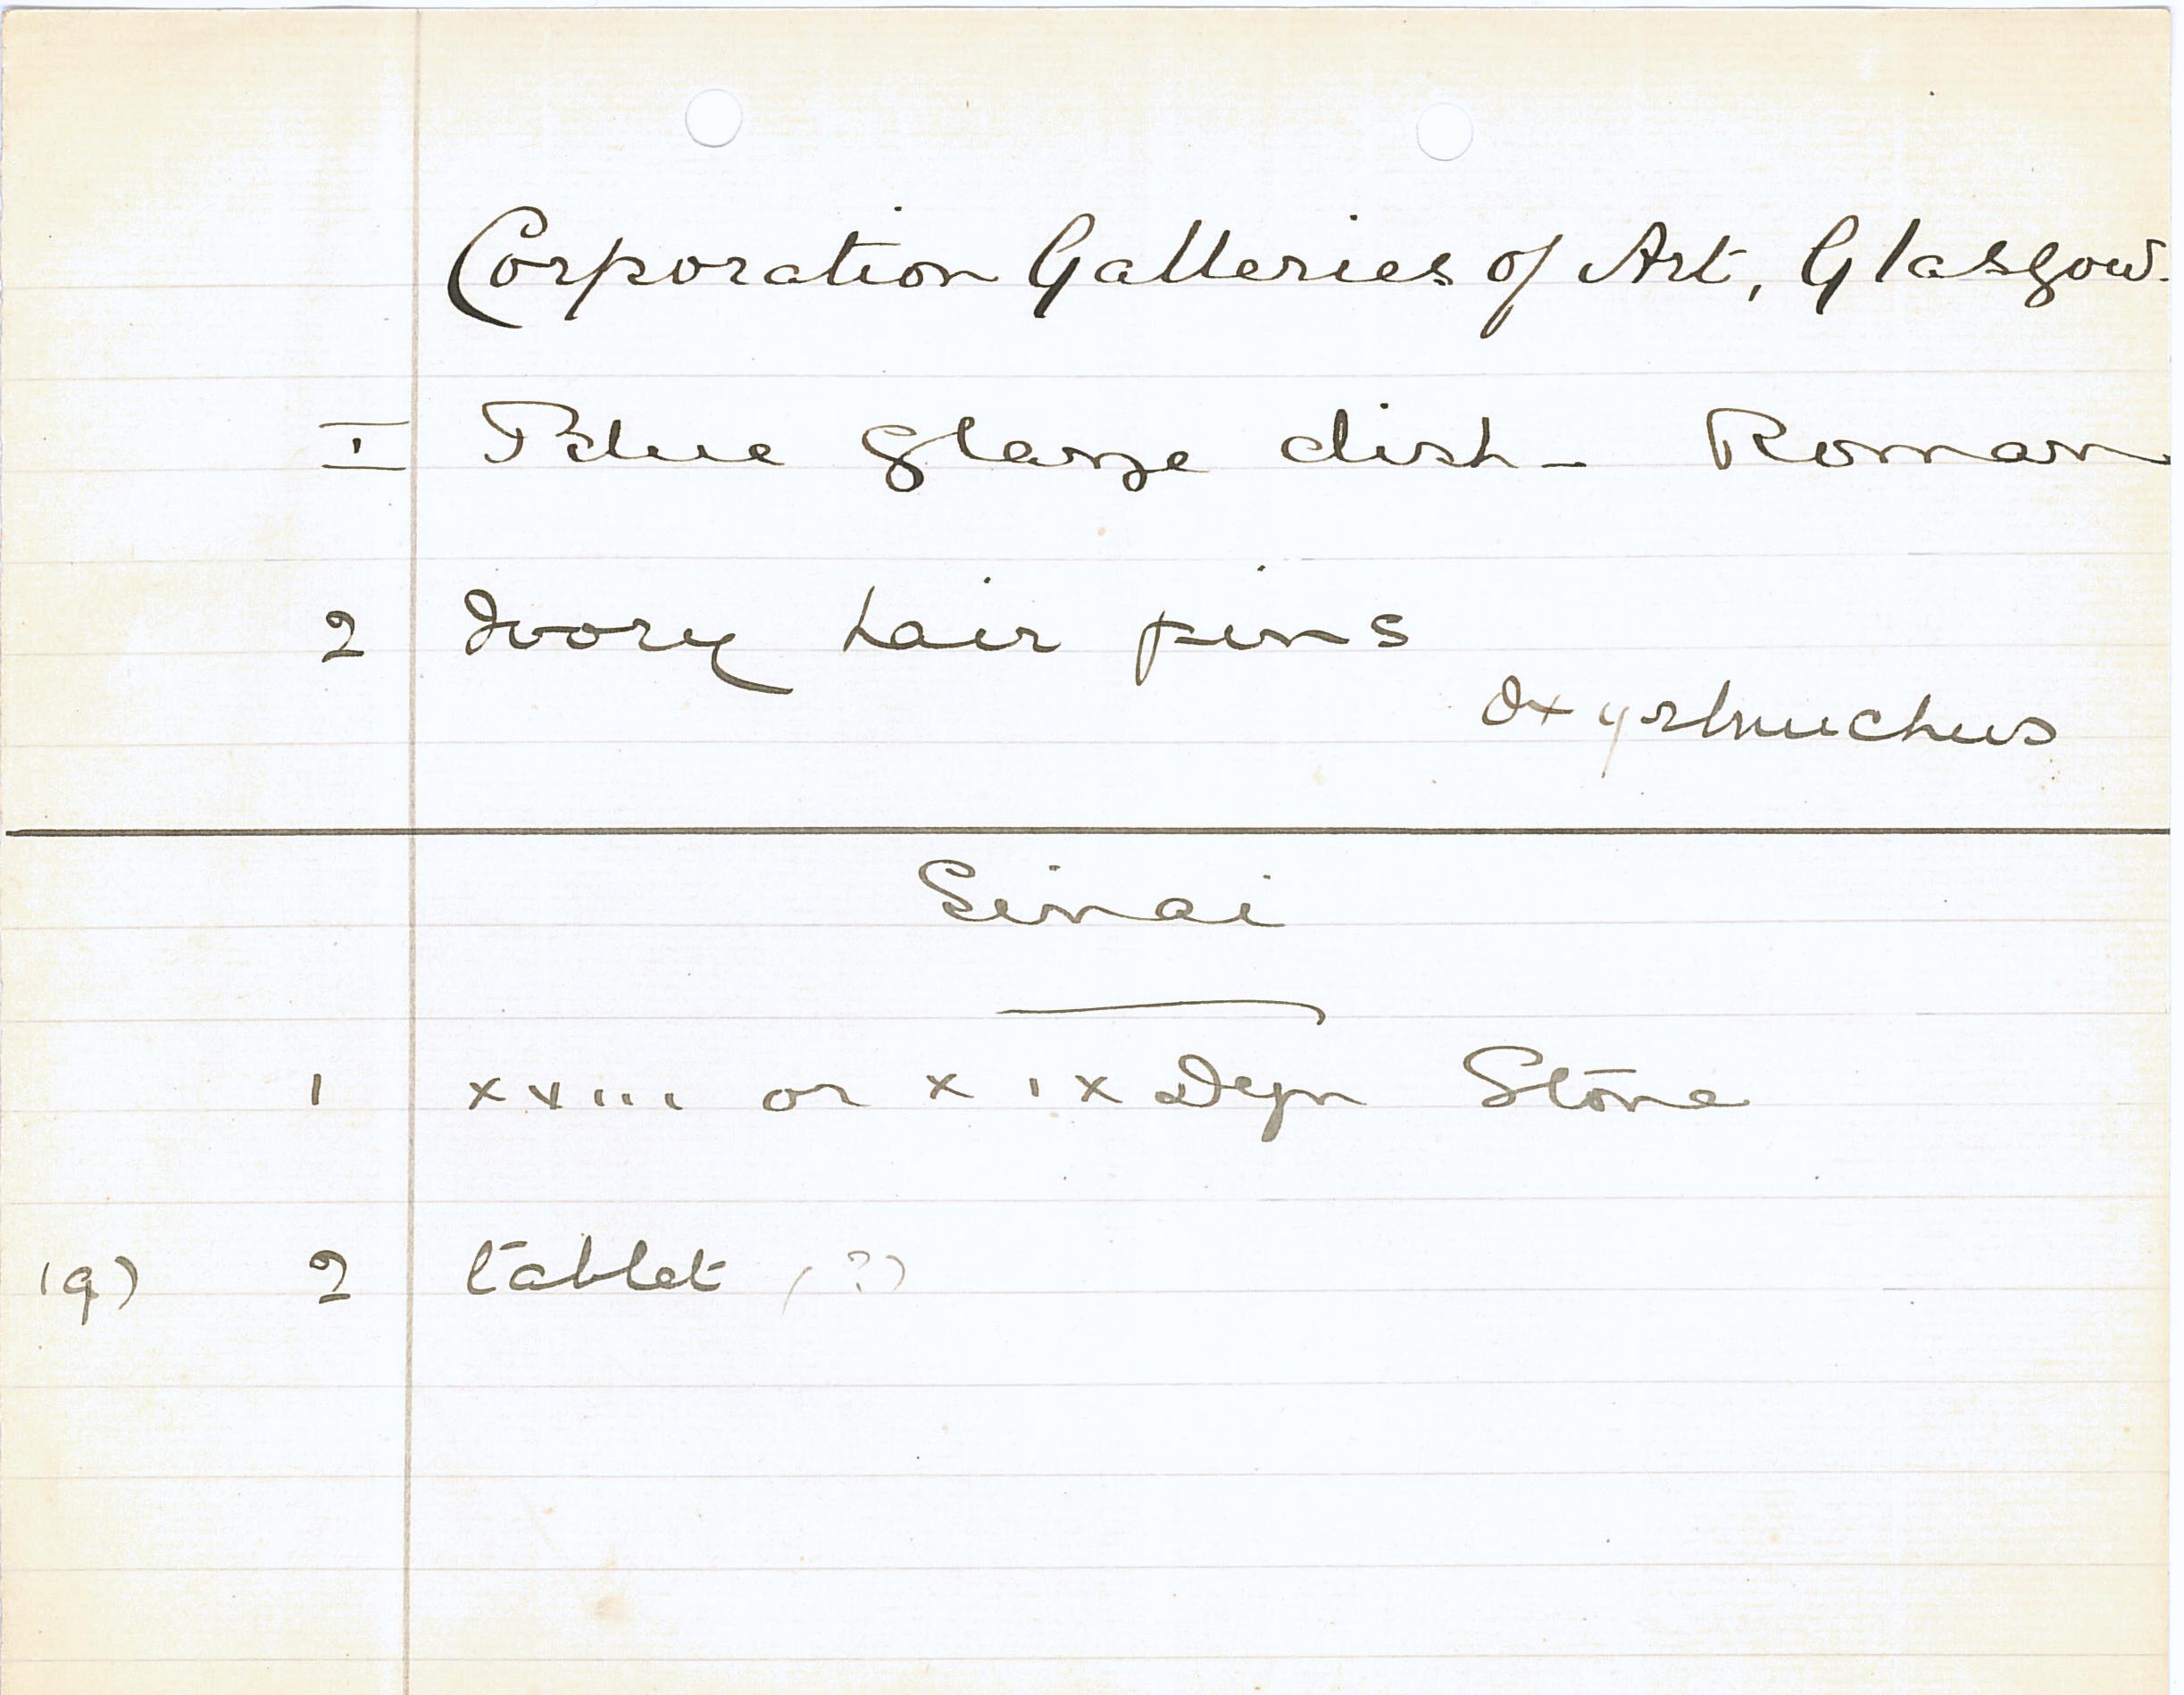 Corporation Galleries of Art, Glasgow.
I Blue glaze dish - Roman
2 Ivory hair pins
Oxyrhnuchus
Sinai
1 xviii or xix Dyn Stone
(9) 2 tablet (?)